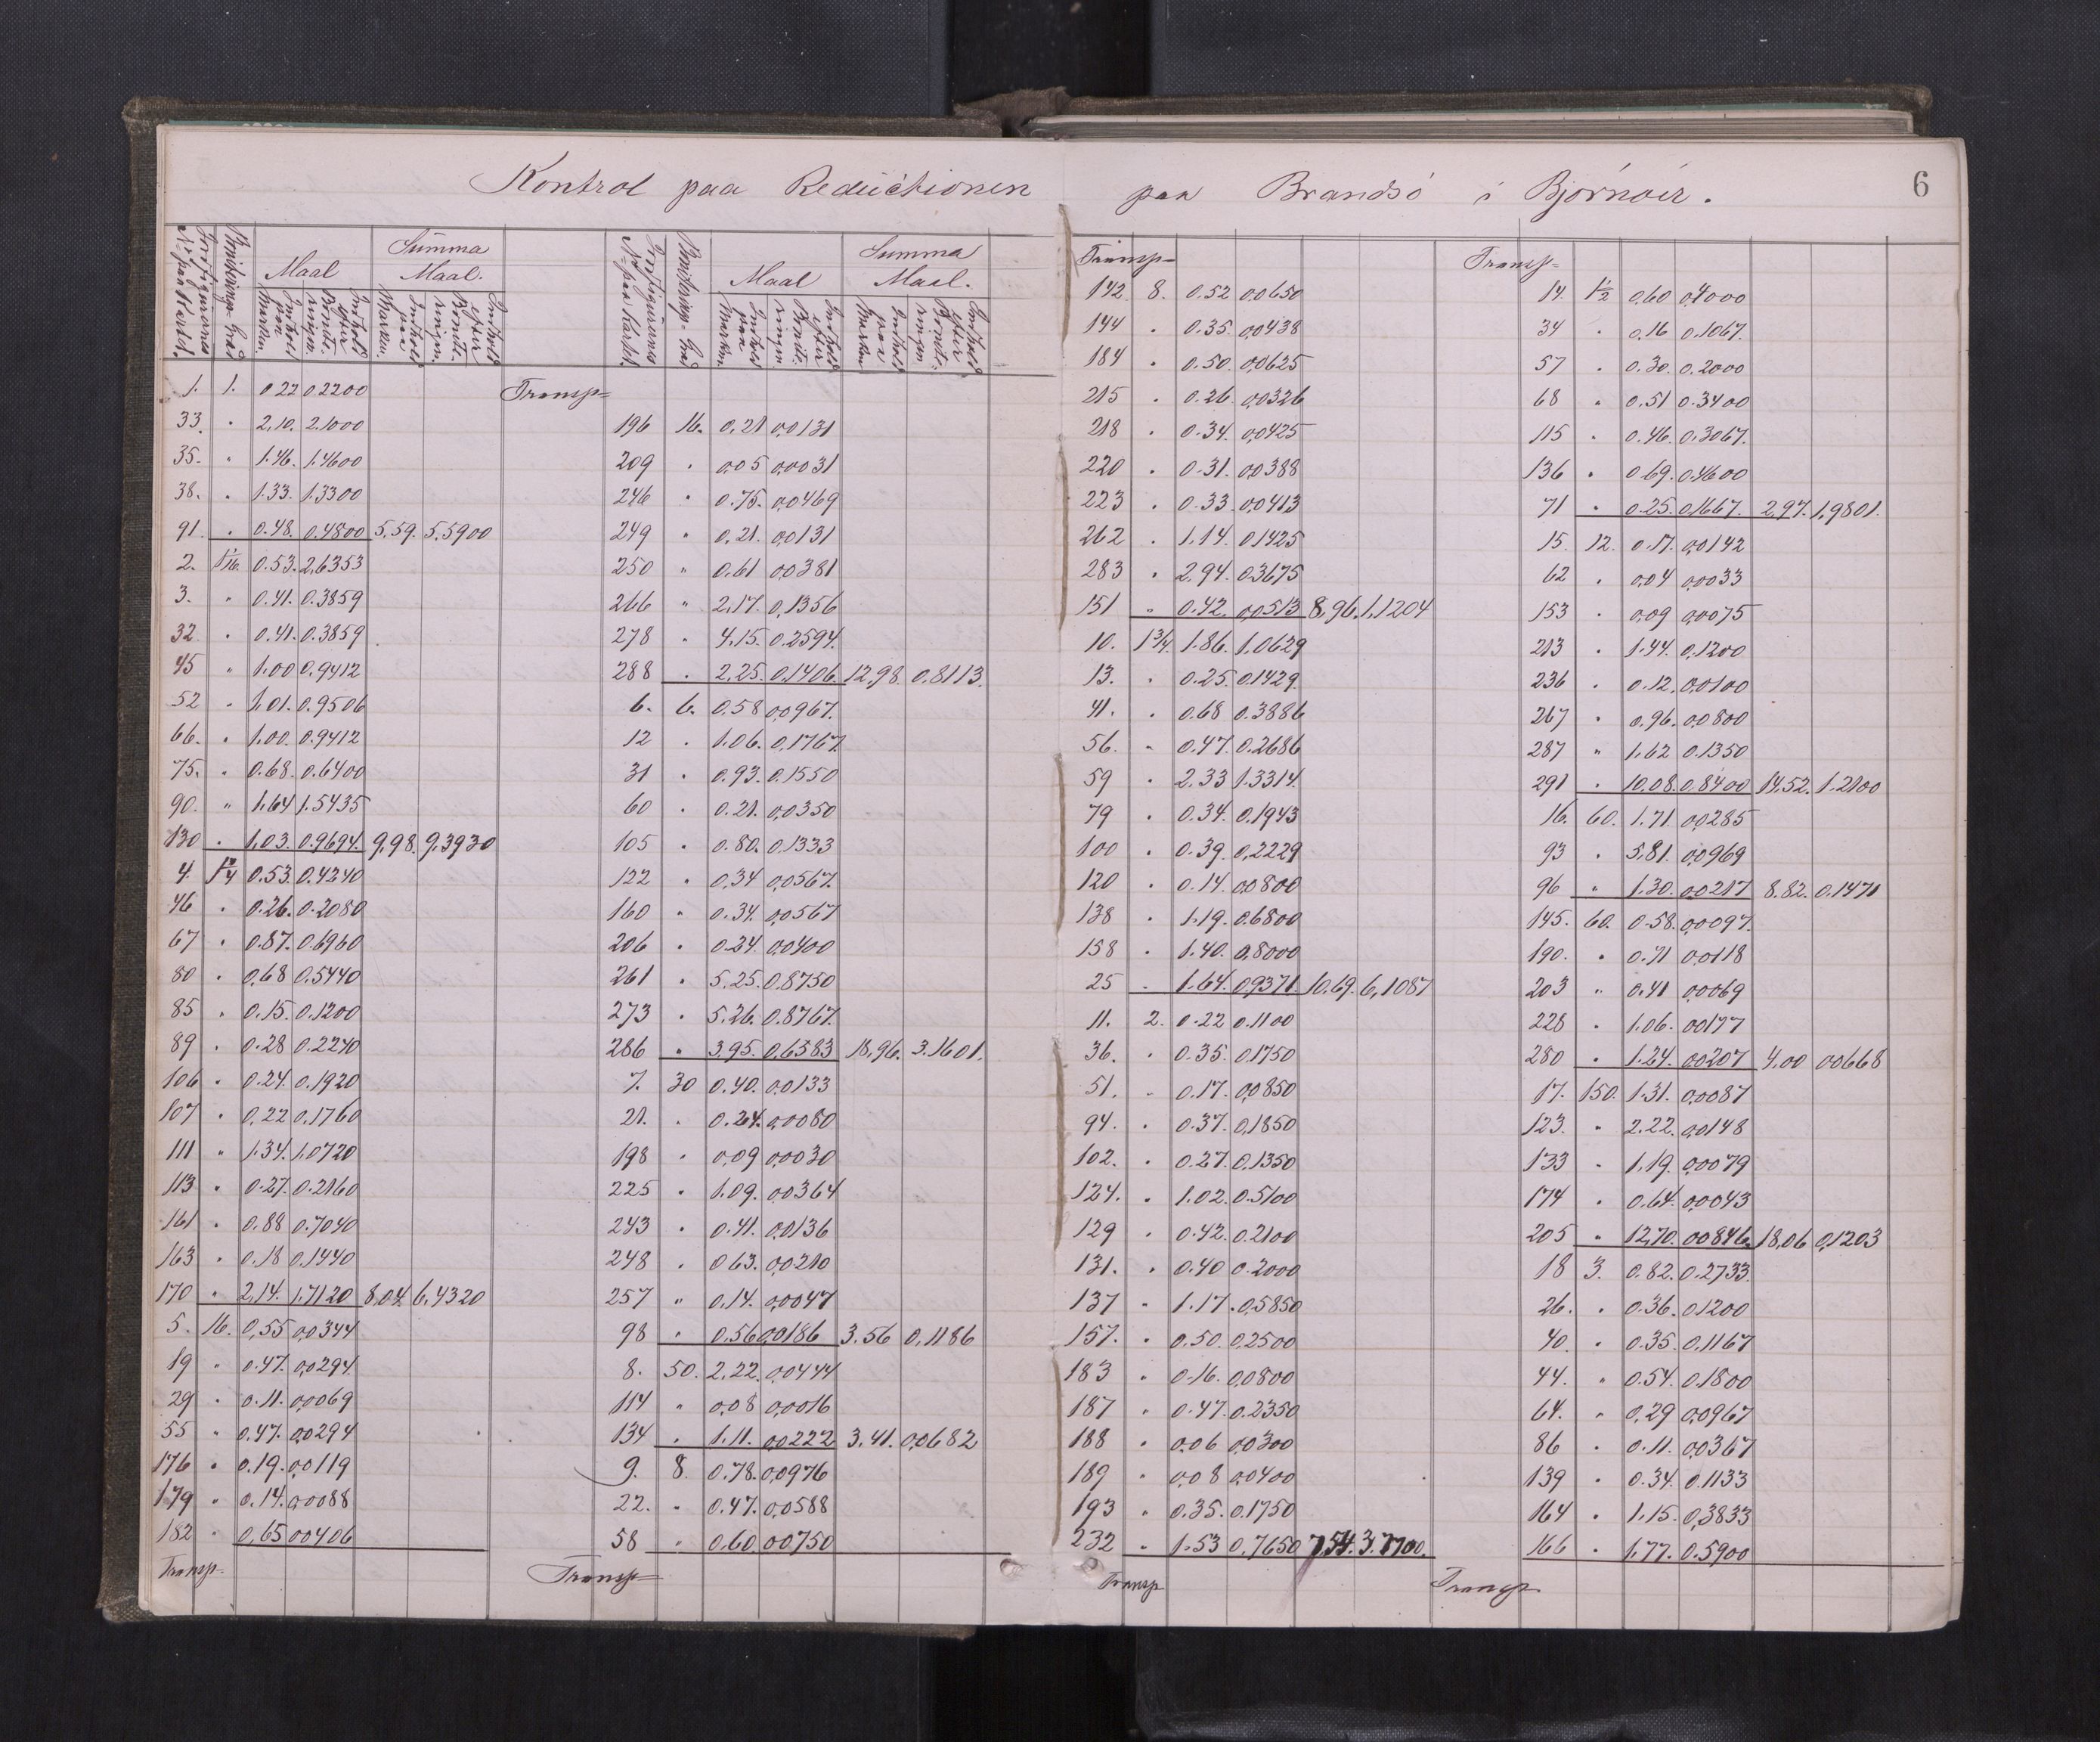 Kontrol paa Reductionen paa Brandsö i Bjornöer.
6
Jordfigurernes No paa Kartet.
Boniterings-Grad
Maal
Indhold paa Marken.
Indhold efter Boniteringen.
Summa Maal.
Indhold paa Marken.
Indhold efter Boniteringen.
1. 1. 0.22 0.2200
33. " 2.10. 2.1000
35. " 1.46. 1.4600
38. " 1.33. 1.3300
91. " 0.48. 0.4800 5.59. 5.5900
2. 1 1/16. 0.53. 2,6353
3. " 0.41. 0.3859
32. " 0.41. 0.3859
45 " 1.00 0.9412
52 " 1.01. 0.9506
66. " 1.00. 0.9412
75. " 0.68. 0.6400
90. " 1.64 1.5435
130 " 1.03. 0.9694. 9,98. 9,3930
4. 1 1/4 0.53. 0.4240
46 " 0.26. 0.2080
67 " 0.87. 0.6960
80 " 0.68 0.5440
85 " 0.15. 0.1200
89 " 0.28 0.2240
106 " 0.24. 0.1920
107 " 0.22 0.1760
111 " 1.34. 1.0720
113 " 0.27. 0.2160
161 " 0.88 0.7040
163 " 0.18 0.1440
170 " 2.14. 1.7120 8,04. 6,4320
5. 16. 0,55 0,0344
19 " 0.47. 0,0294
29 " 0.11. 0,0069
55 " 0.47. 0,0294
176 " 0.19. 0,0119
179 " 0.14. 0,0088
182 " 0,65 0,0406
Transp.
Jordfigurernes No paa Kartet.
Boniterings-Grad
Maal
Indhold paa Marken.
Indhold efter Boniteringen
Summa Maal.
Indhold paa Marken
Indhold efter Boniteringen
Transp
196 16. 0,21 0,0131
209 " 0,05 0,0031
246 " 0.75. 0,0469
249 " 0.21. 0,0131
250 " 0,61 0,0381
266 " 2,17. 0,1356
278 " 4,15. 0.2594.
288 " 2,25. 0,1406 12,98. 0.8113.
6. 6. 0,58 0,0967.
12 " 1.06. 0,1767
31 " 0.93. 0.1550
60 " 0.21. 0,0350
105 " 0.80. 0.1333
122 " 0,34 0,0567.
160 " 0.34. 0,0567
206 " 0.24. 0,0400
261 " 5.25. 0.8750
273 " 5.26. 0.8767.
286 " 3.95. 0,6583 18,96. 3.1601.
7. 30 0.40. 0,0133
21. " 0.24. 0,0080
198 " 0,09 0,0030
225 " 1.09. 0,0364
243 " 0.41. 0,0136
248 " 0.63. 0,0210
257 " 0,14. 0,0047
98 " 0,56 0,0186 3.56 0,1186
8. 50. 2,22. 0,0444
114 " 0,08 0,0016
134 " 1.11. 0,0222 3,41. 0,0682
9. 8. 0.78. 0,0976
22. " 0.47. 0,0588
58 " 0,60. 0,0750
Transp
Transp
142. 8. 0.52 0,0650
144 " 0.35. 0,0438
184 " 0.50. 0,0625
215 " 0.26. 0,0326
218 " 0.34. 0,0425
220 " 0.31. 0,0388
223 " 0.33. 0,0413
262 " 1.14. 0.1425
283 " 2.94. 0.3675
151 " 0.42. 0,0513 8,96. 1,1204
10. 1 3/4. 1.86. 1.0629
13. " 0.25. 0.1429.
41. " 0.68 0.3886
56. " 0.47. 0.2686
59 " 2.33 1.3314.
79 " 0.34. 0.1943
100 " 0.39. 0,2229
120 " 0.14. 0,0800
138 " 1.19. 0.6800
158 " 1.40. 0,8000
25 " 1.64. 0,9371 10,69. 6,1087
11. 2. 0.22 0.1100
36. " 0.35. 0.1750
51. " 0.17. 0,0850
94. " 0.37. 0,1850
102. " 0.27. 0.1350
124. " 1.02. 0.5100
129 " 0.42. 0.2100
131. " 0.40 0.2000
137 " 1.17. 0,5850
157. " 0.50. 0,2500
183 " 0.16. 0,0800
187 " 0.47. 0.2350
188 " 0,06 0,0300
189 " 0,08 0,0400
193 " 0.35. 0.1750
232 " 1.53 0.7650 7,54. 3.7700.
Transp
Transp
14. 1 1/2 0,60 0,4000
34 " 0,16 0.1067.
57 " 0.30. 0.2000
68 " 0,51 0.3400
115 " 0.46. 0,3067.
136 " 0.69. 0.4600
71 " 0.25. 0,1667. 2,97. 1,9801.
15. 12. 0.17. 0,0142
62 " 0,04 0,0033
153 " 0,09 0,0075
213 " 1.44. 0,1200
236 " 0.12. 0,0100
267 " 0,96. 0,0800
287 " 1,62 0.1350
291 " 10,08. 0,8400 14,52. 1.2100
16. 60. 1.71. 0,0285
93 " 5,81. 0,0969
96 " 1.30. 0,0217 8.82. 0,1471
145. 60. 0.58. 0,0097.
190. " 0.71 0,0118
203 " 0.41 0,0069
228 " 1.06. 0,0177
280 " 1.24. 0,0207 4,00 0,0668
17. 150. 1.31. 0,0087
123. " 2.22. 0,0148
133 " 1,19. 0,0079
174 " 0,64. 0,0043
205 " 12,70. 0,0846. 18,06 0,1203
18 3. 0.82. 0.2733.
26. " 0.36. 0.1200
40. " 0.35. 0.1167
44. " 0.54. 0.1800
64. " 0,29 0,0967
86 " 0.11. 0,0367
139 " 0.34. 0.1133
164 " 1,15. 0,3833
166 " 1.77. 0.5900
Transp